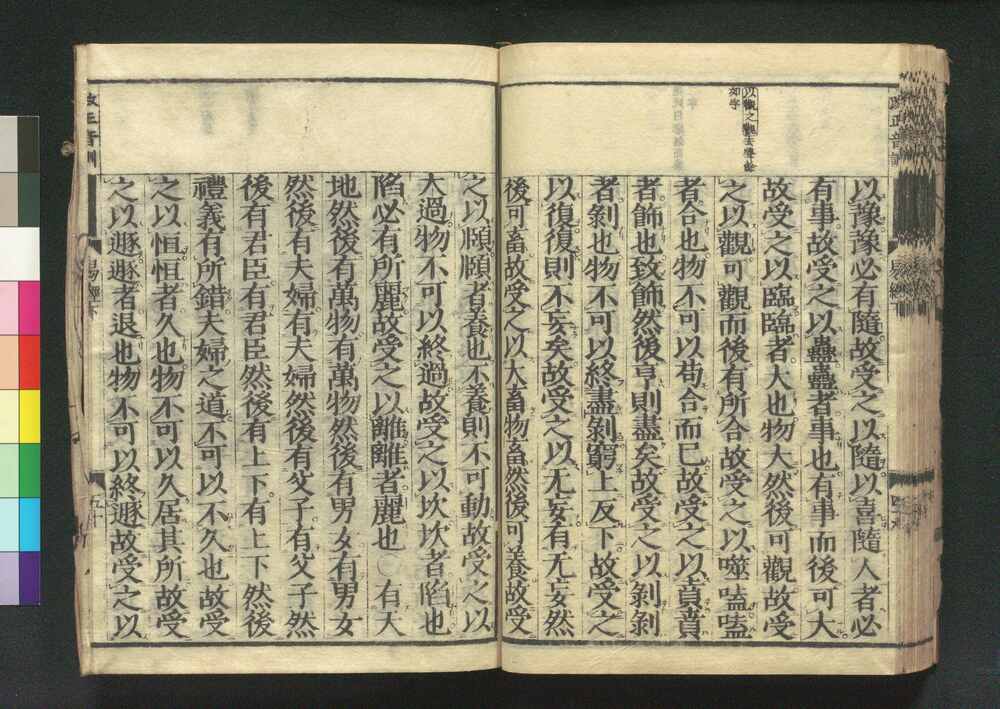 以觀之觀去聲餘
如字
以豫豫必有隨故受之以隨以喜隨人者必
有事故受之以蠱蠱者事也有事而後可大
故受之以臨臨者大也物大然後可觀故受
之以觀可觀而後有所合故受之以噬嗑嗑
者合也物不可以苟合而已故受之以賁賁
者飾也致飾然後亨則盡矣故受之以剝剝
者剝也物不可以終盡剝窮上反下故受之
以復復則不妄矣故受之以无妄有无妄然
後可畜故受之以大畜物畜然後可養故受
之以頤頤者養也不養則不可動故受之以
大過物不可以終過故受之以坎坎者陷也
陷必有所麗故受之以離離者麗也○有天
地然後有萬物有萬物然後有男女有男女
然後有夫婦有夫婦然後有父子有父子然
後有君臣有君臣然後有上下有上下然後
禮義有所錯夫婦之道不可以不久也故受
之以恒恒者久也物不可以久居其所故受
之以遯遯者退也物不可以終遯故受之以
改正音訓
易經下
五十